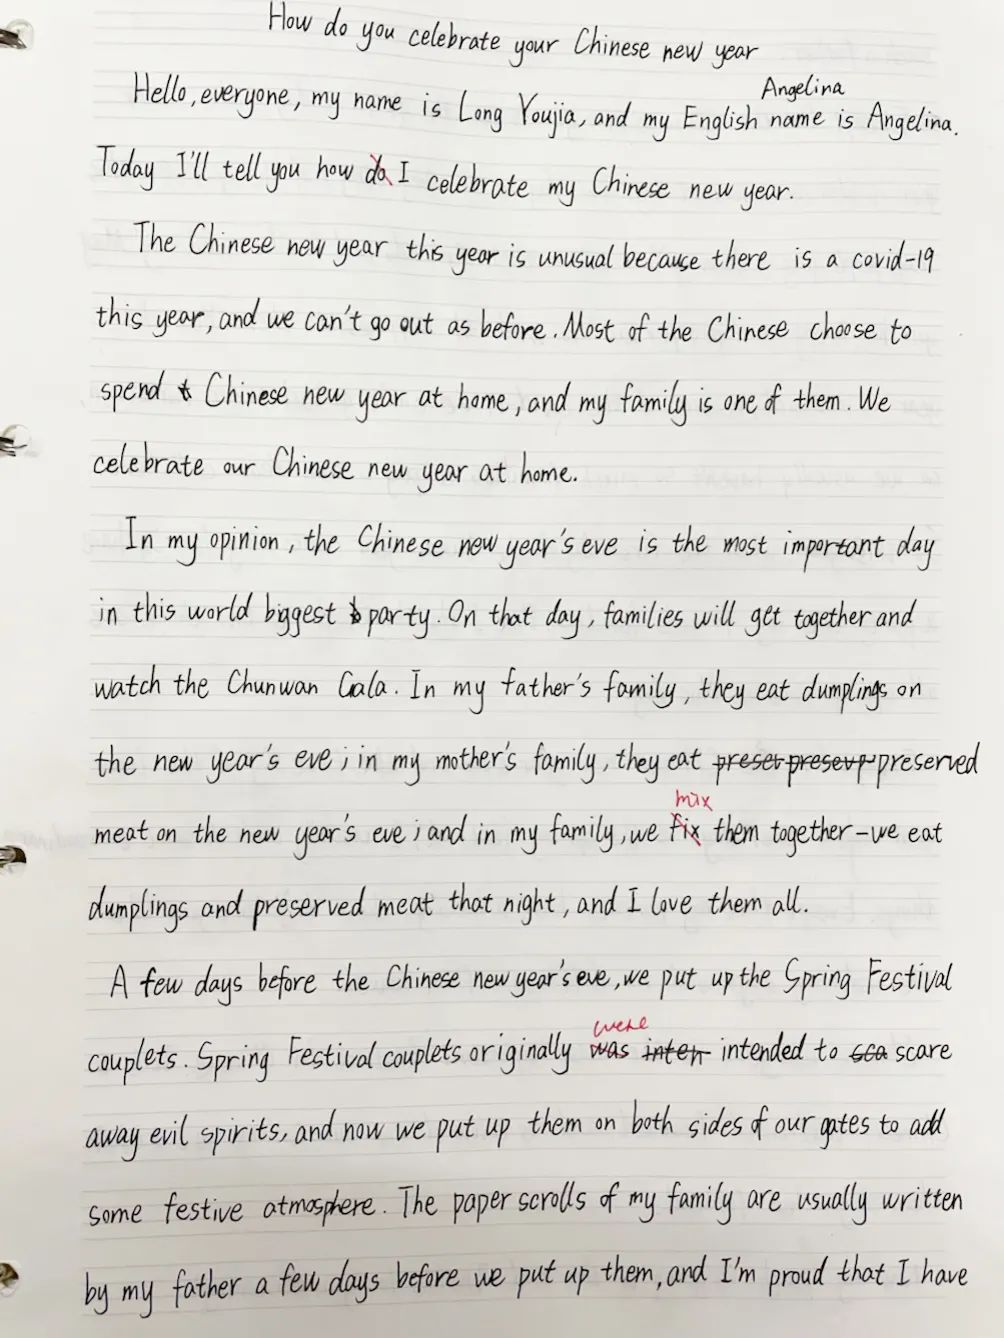 How do you celebrate your Chinese new year
Angelina
Hello, everyone, my name is Long Youjia, and my English name is Angelina.
Today I'll tell you how do I celebrate my Chinese new year.
The Chinese new year this year is unusual because there is a covid-19
this year, and we can't go out as before. Most of the Chinese choose to
spend t Chinese new year at home, and my family is one of them. We
celebrate our Chinese new year at home.
In my opinion, the Chinese new year's eve is the most important day
in this world biggest b party. On that day, families will get together and
watch the Chunwan Gala. In my father's family, they eat dumplings on
the new year's eve; in my mother's family, they eat preser presevp preserved
mix
meat on the new year's eve; and in my family, we fix them together-we eat
dumplings and preserved meat that night, and I love them all.
A few days before the Chinese new year's eve, we put up the Spring Festival
were
couplets. Spring Festival couplets originally was inten intended to sca scare
away evil spirits, and now we put up them on both sides of our gates to add
some festive atmosphere. The paper scrolls of my family are usually written
by my father a few days before we put up them, and I'm proud that I have